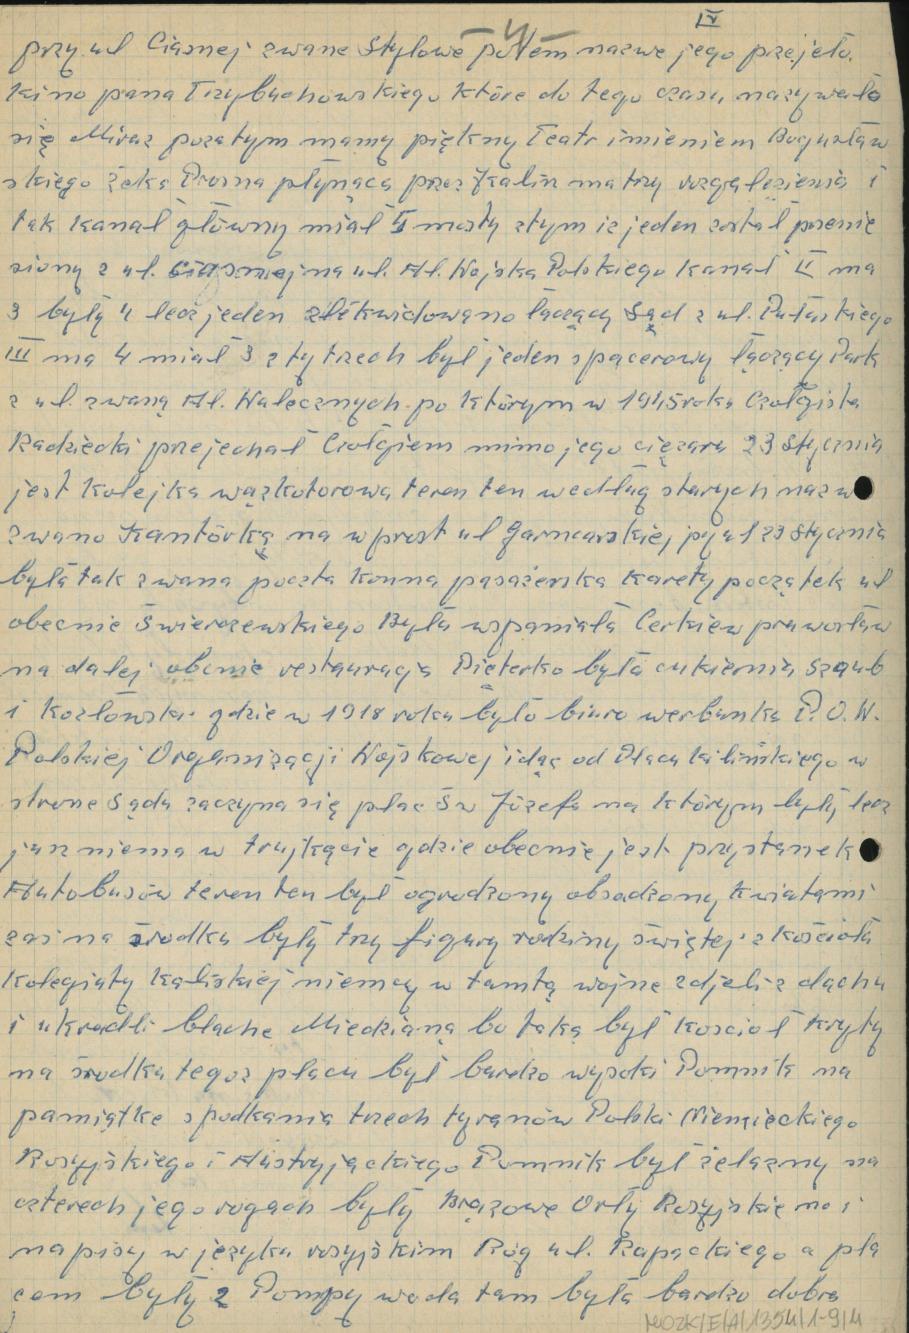 IV
-4-
przy ul Ciasnej zwane Stylowe potem nazwe jego przejeło.
Kino pana Trzybuchowskiego które do tego czasu nazywało
się Miraż pozatym mamy piękny Teatr imieniem Bogusław
skiego żeka Prosna płynąca przez Kalin ma trzy rozgałezienia i
tak kanał główny miał 5 mosty ztym iz jeden został przenie
siony z ul. na ul. Al. Wojska Polskiego kanał II ma
3 były 4 lecz jeden zlikwidowano łączący Sąd z ul. Pułaskiego
III ma 4 miał 3 z ty trzech był jeden spacerowy łączący Park
z ul. zwaną Al. Walecznych po którym w 1945 roku Czołgista
Radziecki przejechał Czołgiem mimo jego ciężaru 23 Stycznia
jest kolejka wązkotorowa teren ten według starych nazw
zwano Kantórką na wprost ul Garncarskiej 23 Stycznia
była tak zwana poczta konna pasażerska karety początek ul
obecnie Świerczewskiego Była wspaniała Cerkiew prawosław
na dalej obcnie restauracja Pieterko była cukiernia Szaub
i Kozłowski gdzie w 1918 roku było biuro werbunku P.O.W.
Polskiej Organizącji Wojskowej idąc od Placu Kilińskiego w
strone Sądu zaczyna się plac Św Józefa na którym były lecz
juz niema w trujkącie gdzie obecnie jest przystanek
Autobusów teren ten był ogrodzony obsadzony kwiatami
zaś na środku były trzy figury rodziny świętej z kościoła
Kolegiaty Kaliskiej niemcy w tamtą wojne zdjeli z dachu
i ukradli blache Miedzianą bo taką był kosciol kryty
na środku tegoz placu był bardzo wysoki Pomnik na
pamiątke spodkania trzech tyranów Polski Niemieckiego
Rosyjskiego i Austryjackiego Pomnik był żelazny na
czterech jego rogach były Brązowe Orły Rosyjskie no i
napisy w języku rosyjskim Róg ul. Rapackiego a pla
cem były 2 Pompy woda tam była bardzo dobra
MOZK/E/A/1354/1-9/4